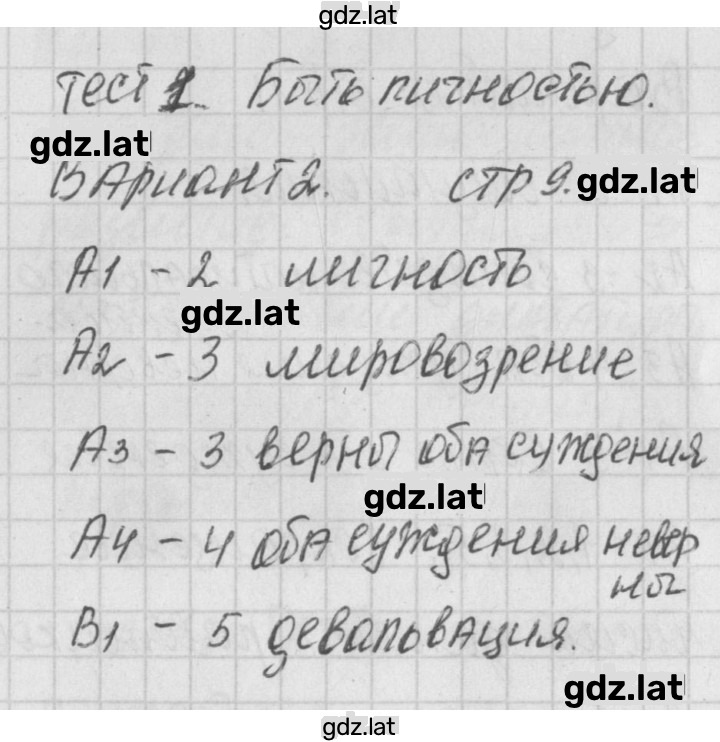 gdz.lat
Тест 1. Быть личностью.
gdz.lat
Вариант 2. стр 9. gdz.lat
А1 - 2 личность
gdz.lat
А2 - 3 мировозрение
А3 - 3 верны оба суждения
gdz.lat
А4 - 4 оба суждения невер
ны
В1 - 5 девальвация.
gdz.lat
gdz.lat